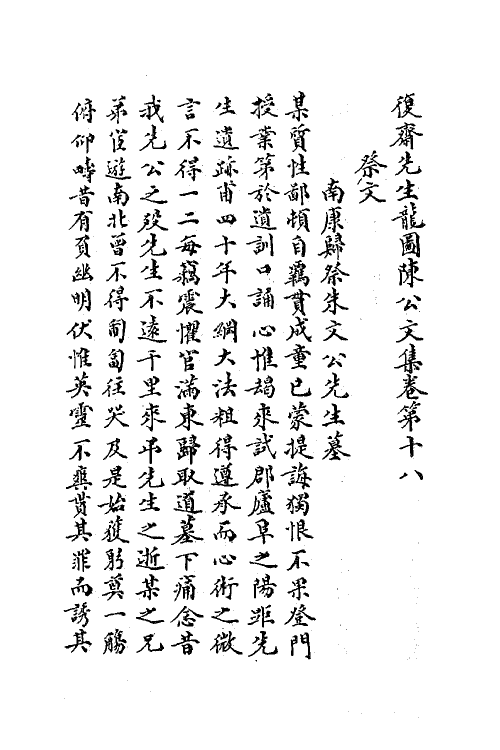 復齋先生龍圖陳公文集卷第十八
祭文
南康歸祭朱文公先生墓
某質性鄙頓自羈貫成童已蒙提誨獨恨不果登門
授業第於遺訓口誦心惟朅來試郡廬阜之陽距先
生遺跡甫四十年大綱大法粗得遵承而心術之微
言不得一二每竊震懼官滿東歸取道墓下痛念昔
我先公之歿先生不遠千里來弔先生之逝某之兄
弟宦遊南北曾不得匍匐往哭及是始獲躬奠一觴
俯仰疇昔有負幽明伏惟英靈不爽貰其罪而誘其